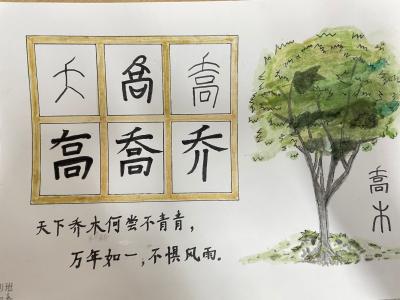 喬 乔
天下乔木何尝不青青，
万年如一，不惧风雨。
喬木